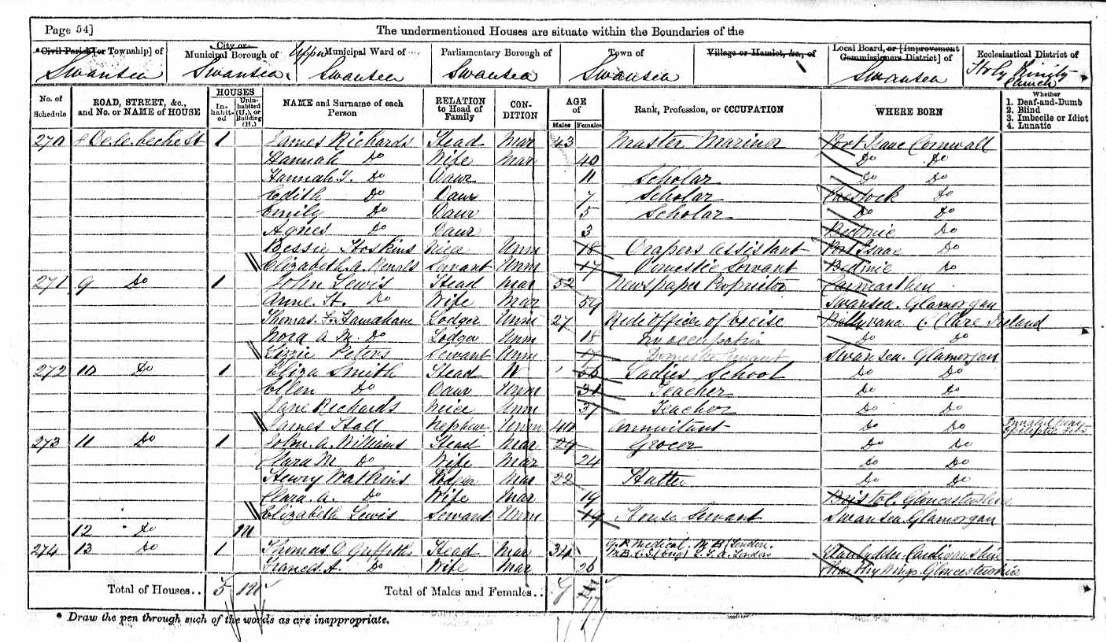 Page 54] The undermentioned Houses are situate within the Boundaries of the
Civil Parish [or Township] of City or Municipal Borough of Upper Municipal Ward of Parliamentary Borough of Town of Village or Hamlet, &c., of Local Board, or [Improvement Commissioners District] of Ecclesiastical District of
Swansea Swansea Swansea Swansea Swansea Swansea Holy Trinity Church
No. of Schedule ROAD, STREET, &c., and No. or NAME of HOUSE HOUSES Inhabited Uninhabited (U.), or Building (B.) NAME and Surname of each Person RELATION to Head of Family CONDITION AGE of Males Females Rank, Profession, or OCCUPATION WHERE BORN Whether 1. Deaf-and-Dumb 2. Blind 3. Imbecile or Idiot 4. Lunatic
270 8 De la beche St 1 James Richards Head Mar 43 Master Mariner Port Isaac Cornwall
Hannah Do Wife Mar 40 Do Do
Hannah Do Daur 11 Scholar Do Do
Edith Do Daur 7 Scholar Do
Emily Do Daur 5 Scholar Do Do
Agnes Do Daur 3 Do
Bessie Hoskins Niece Unm 18 Drapers assistant Port Isaac Do
Elizabeth A. Servant Unm 17 Domestic Servant Do
271 9 Do 1 John Lewis Head Mar 52 Newspaper Proprietor Carmarthen
Anne Do Wife Mar Swansea. Glamorgan
Thomas Lodger Unm 27 officer of Clare Ireland
Nora Do Lodger Unm 18 No occupation Do Do
Peters Servant Unm Domestic Servant Swansea. Glamorgan
272 10 Do 1 Eliza Smith Head W Ladies School Do Do
Ellen Do Daur Unm Teacher Do Do
Jane Richards Niece Unm Teacher Do Do
James Hall Nephew Unm 40 Do Do
273 11 Do 1 John A. Williams Head Mar Grocer Do Do
Clara M. Do Wife Mar 24 Do Do
Henry Watkins Mar 22 Hatter Do Do
Clara. A. Do Wife Mar 19 Bristol. Gloucestershire
Elizabeth Lewis Servant Unm 19 House Servant Swansea. Glamorgan
12 Do
274 13 Do 1 Thomas Griffiths Head Mar Llanbydder Cardiganshire
Frances A. Do Wife Mar Gloucestershire
Total of Houses.. 5 Total of Males and Females.. 9
* Draw the pen through such of the words as are inappropriate.